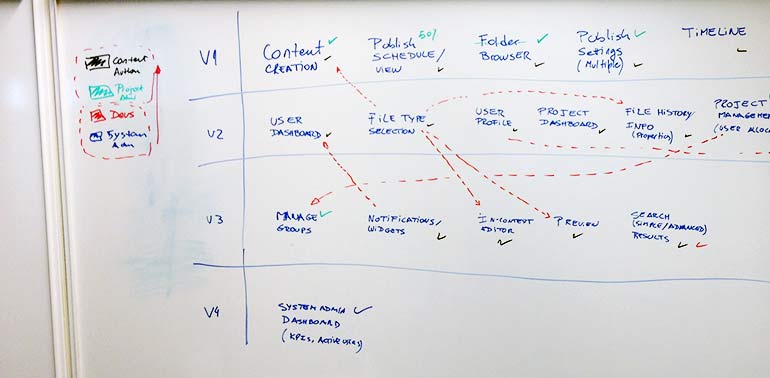 Content
Author
Project
Devs
System
Adm
V1
Content
CREATION
Publish 50%
SCHEDULE/
VIEW
Folder
BROWSER
Publish
Settings
(Multiple)
TIMELINE
V2
USER
DASHBOARD
FILE TYPE
SELECTION
USER
PROFILE
PROJECT
DASHBOARD
FILE HISTORY/
INFO
(Properties)
PROJECT
MANAGEME
(USER ALLOC
V3
MANAGE
GROUPS
NOTIFICATIONS/
WIDGETS
IN-CONTEXT
EDITOR
PREVIEW
SEARCH
(SIMPLE/ADVANCED)
RESULTS
V4
SYSTEM ADMIN
DASHBOARD
(KPIs, ACTIVE USERS)